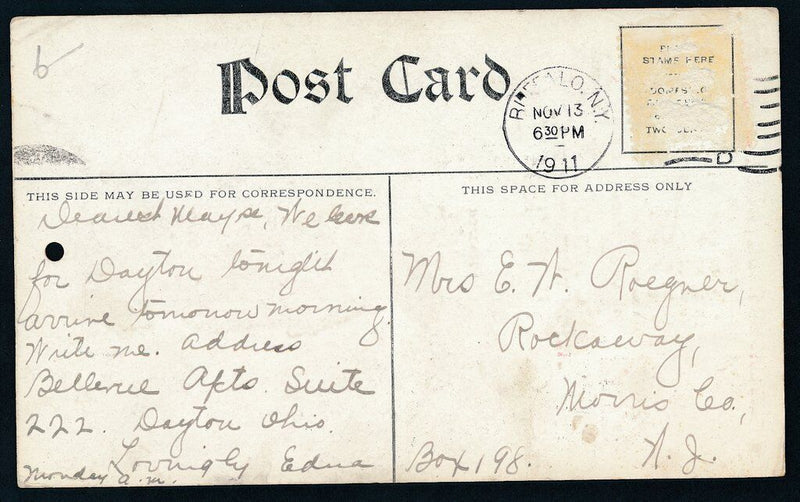 6
Post Card
BUFFALO, N.Y.
NOV 13
6 30 PM
1911
STAMP HERE
DOMESTIC
TWO CENTS
D
THIS SIDE MAY BE USED FOR CORRESPONDENCE.
THIS SPACE FOR ADDRESS ONLY
Dearest Mayse, We leave
for Dayton tonight
arrive tomorrow morning.
Write me. Address
Bellevue Apts. Suite
222. Dayton Ohio.
Lovingly Edna
Monday a.m.
Mrs E. W. Roegner,
Rockaway,
Morris Co.,
N. J.
Box 198.